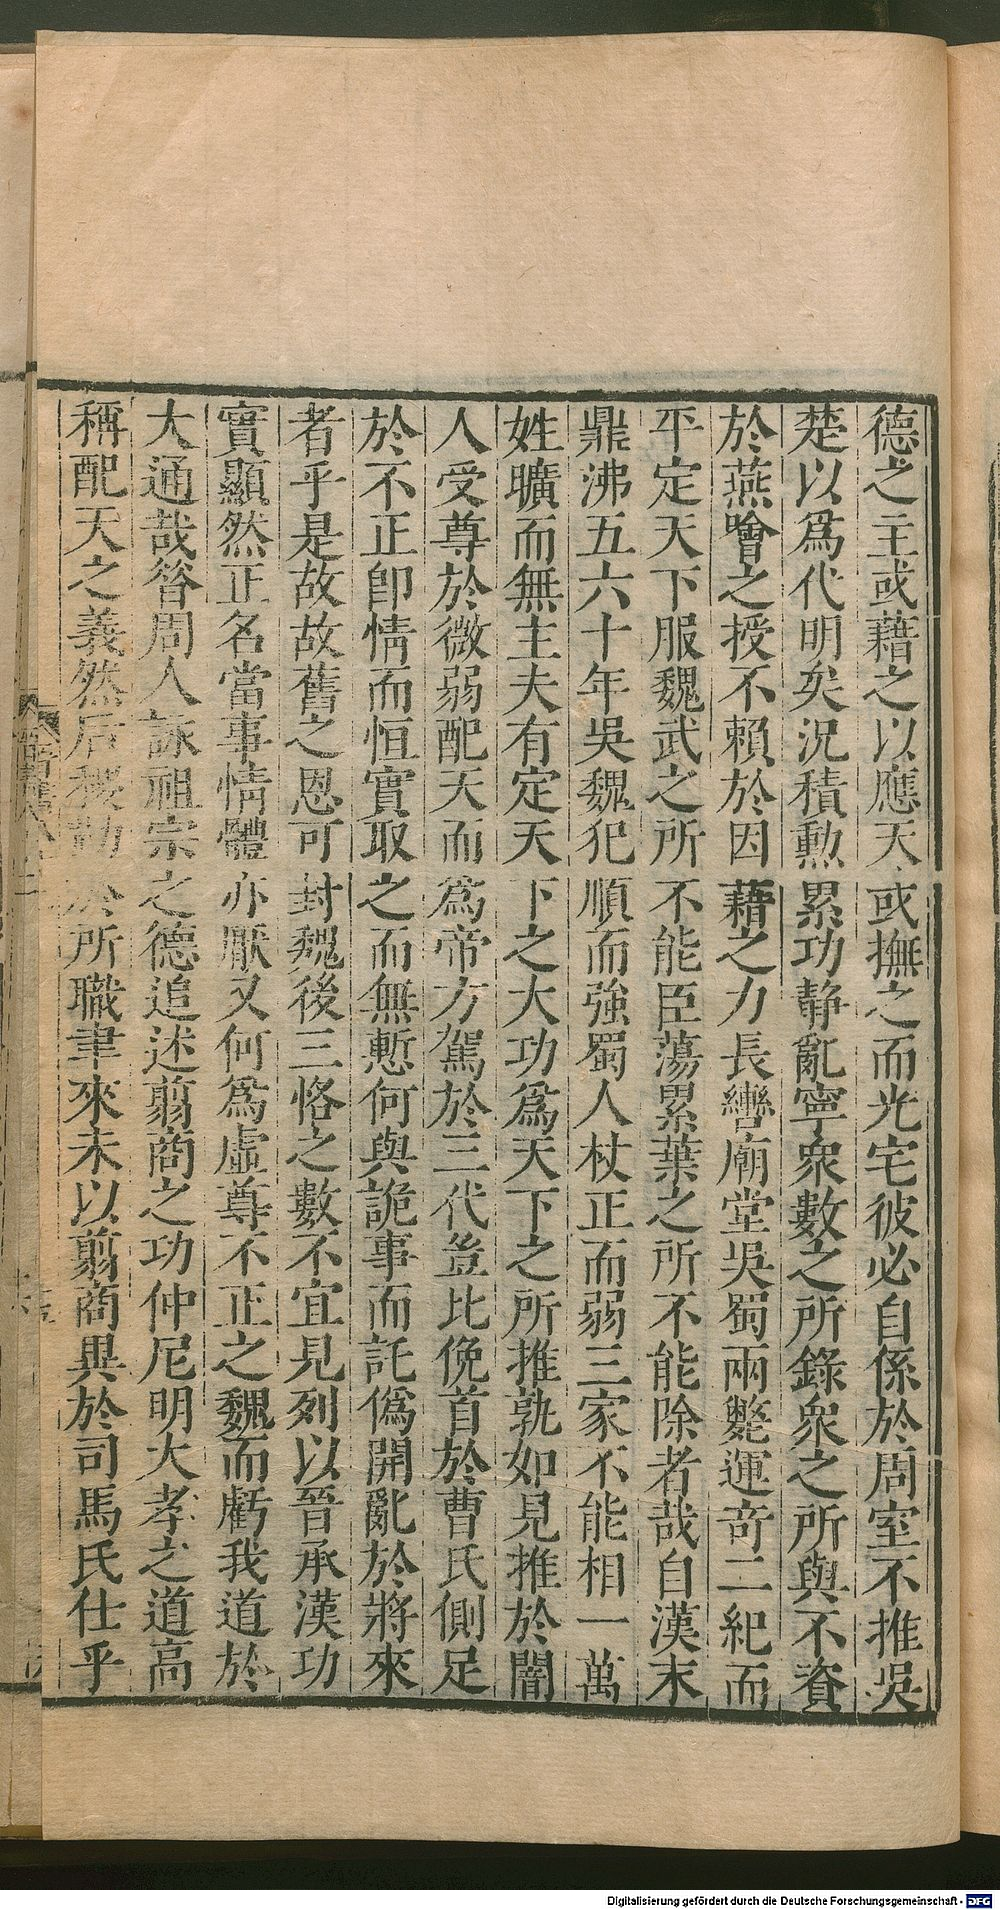 德之主或藉之以應天或撫之而光宅彼必自係於周室不推吳
楚以爲代明矣況積勲累功靜亂寧衆數之所錄衆之所與不資
於燕噲之授不賴於因藉之力長轡廟堂吳蜀兩斃運奇二紀而
平定天下服魏武之所不能臣蕩累葉之所不能除者哉自漢末
鼎沸五六十年吳魏犯順而強蜀人杖正而弱三家不能相一萬
姓曠而無主夫有定天下之大功爲天下之所推孰如見推於闇
人受尊於微弱配天而爲帝方駕於三代豈比俛首於曹氏側足
於不正卽情而恒實取之而無慙何與詭事而託僞開亂於將來
者乎是故故舊之恩可封魏後三恪之數不宜見列以晉承漢功
實顯然正名當事情體亦厭又何爲虛尊不正之魏而虧我道於
大通哉昝周人詠祖宗之德追述翦商之功仲尼明大孝之道高
稱配天之義然后稷勤於所職聿來未以翦商異於司馬氏仕乎
Digitalisierung gefördert durch die Deutsche Forschungsgemeinschaft - DFG